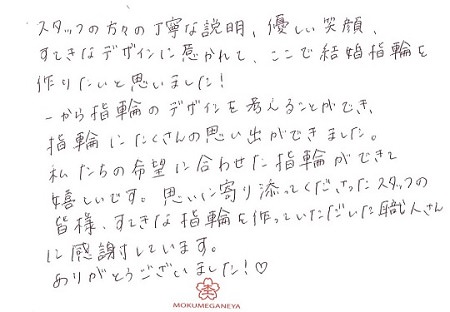 スタッフの方々の丁寧な説明、優しい笑顔、
すてきなデザインに惹かれて、ここで結婚指輪を
作りたいと思いました！
一から指輪のデザインを考えることができ、
指輪にたくさんの思い出ができました。
私たちの希望に合わせた指輪ができて
嬉しいです。思いに寄り添ってくださったスタッフの
皆様、すてきな指輪を作っていただいた職人さん
に感謝しています。
ありがとうございました！♡
MOKUMEGANEYA